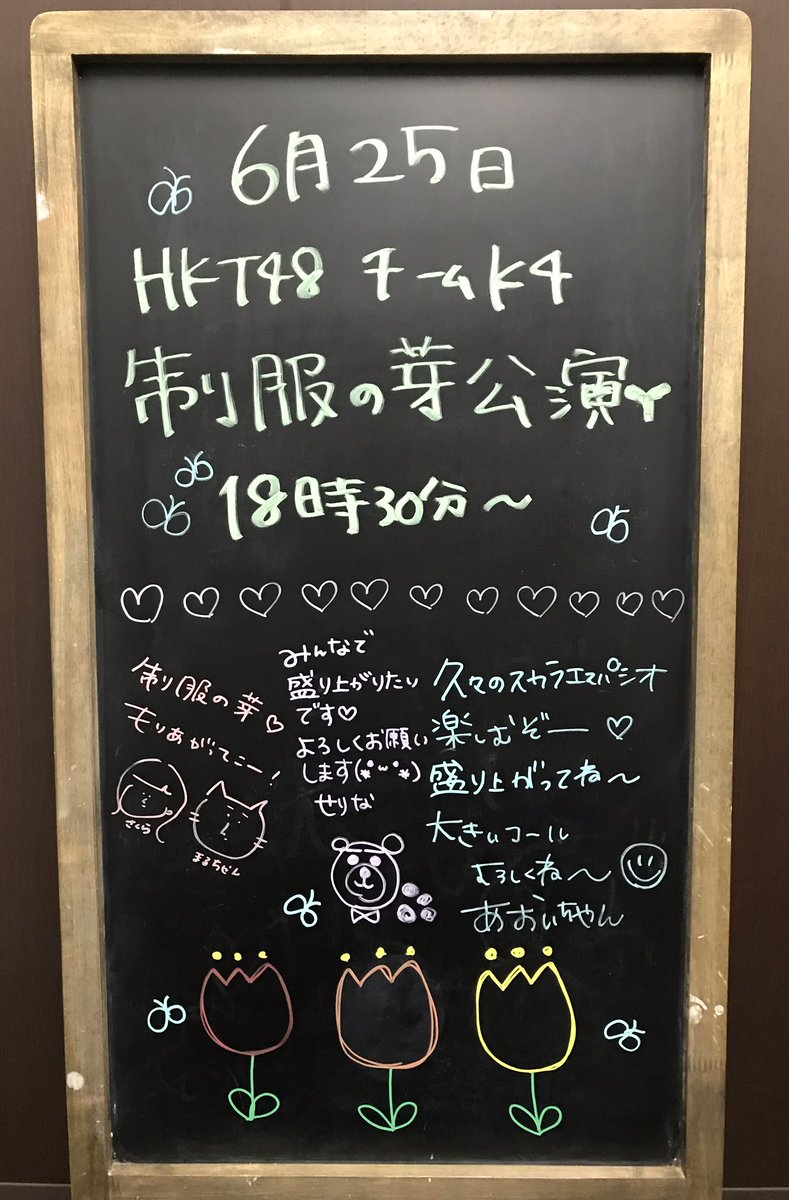 6月25日
HKT48 チームK4
制服の芽公演
18時30分～
制服の芽♡
もりあがってこー！
さくら
まるちゃん
みんなで
盛り上がりたい
です♡
よろしくお願い
します(*'ω'*)
せりな
久々のスカラエスパシオ
楽しむぞー ♡
盛り上がってね～
大きいコール
よろしくね～
あおいちゃん